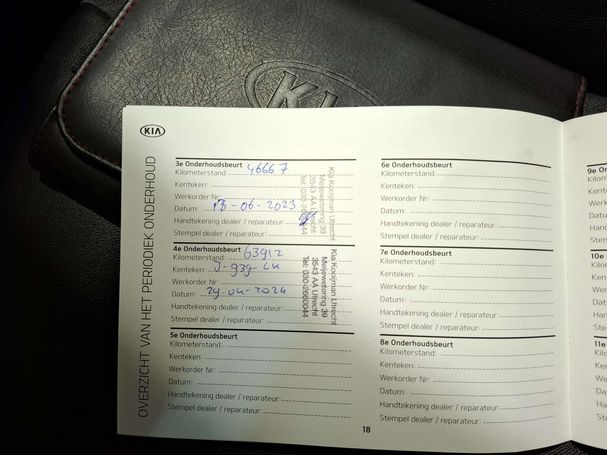 KIA
KIA
OVERZICHT VAN HET PERIODIEK ONDERHOUD
3e Onderhoudsbeurt
Kilometerstand 46667
Kenteken:
Werkorder Nr:
Datum: 13-06-2023
Handtekening dealer / reparateur:
Stempel dealer / reparateur:
Kia Kooijman Utrecht
Meijewetering 39
3543 AA Utrecht
4e Onderhoudsbeurt
Kilometerstand: 63912
Kenteken: J-939-LK
Werkorder Nr:
Datum: 29-04-2024
Handtekening dealer / reparateur:
Stempel dealer / reparateur:
Kia Kooijman Utrecht
Meijewetering 39
3543 AA Utrecht
Tel: 030-2660044
5e Onderhoudsbeurt
Kilometerstand:
Kenteken:
Werkorder Nr:
Datum:
Handtekening dealer / reparateur:
Stempel dealer / reparateur:
6e Onderhoudsbeurt
Kilometerstand:
Kenteken:
Werkorder Nr:
Datum:
Handtekening dealer / reparateur:
Stempel dealer / reparateur:
7e Onderhoudsbeurt
Kilometerstand:
Kenteken:
Werkorder Nr:
Datum:
Handtekening dealer / reparateur:
Stempel dealer / reparateur:
8e Onderhoudsbeurt
Kilometerstand:
Kenteken:
Werkorder Nr:
Datum:
Handtekening dealer / reparateur:
Stempel dealer / reparateur:
18
10e
11e